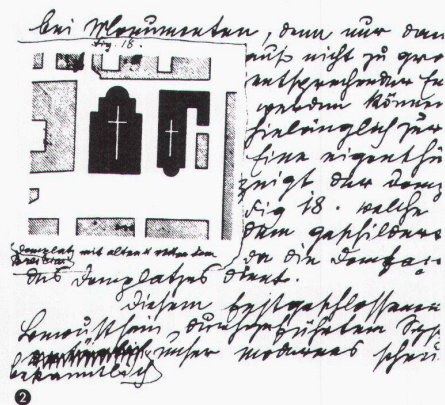 bei Monumenten, denn nur dan
fig. 18.
auf nicht zu gro
entsprechender En
werden können
hinlänglich zur
Eine eigenthü
zeigt der Domp
Fig 18. welche
dem geschildert
Domplatz mit altem u. neuem Dom
da die Domfaç
des Domplatzes dient.
Diesem festgeschlossenen
Bewußtsein durchgeführtem Sys
unser modernes schei
bekanntlich
2